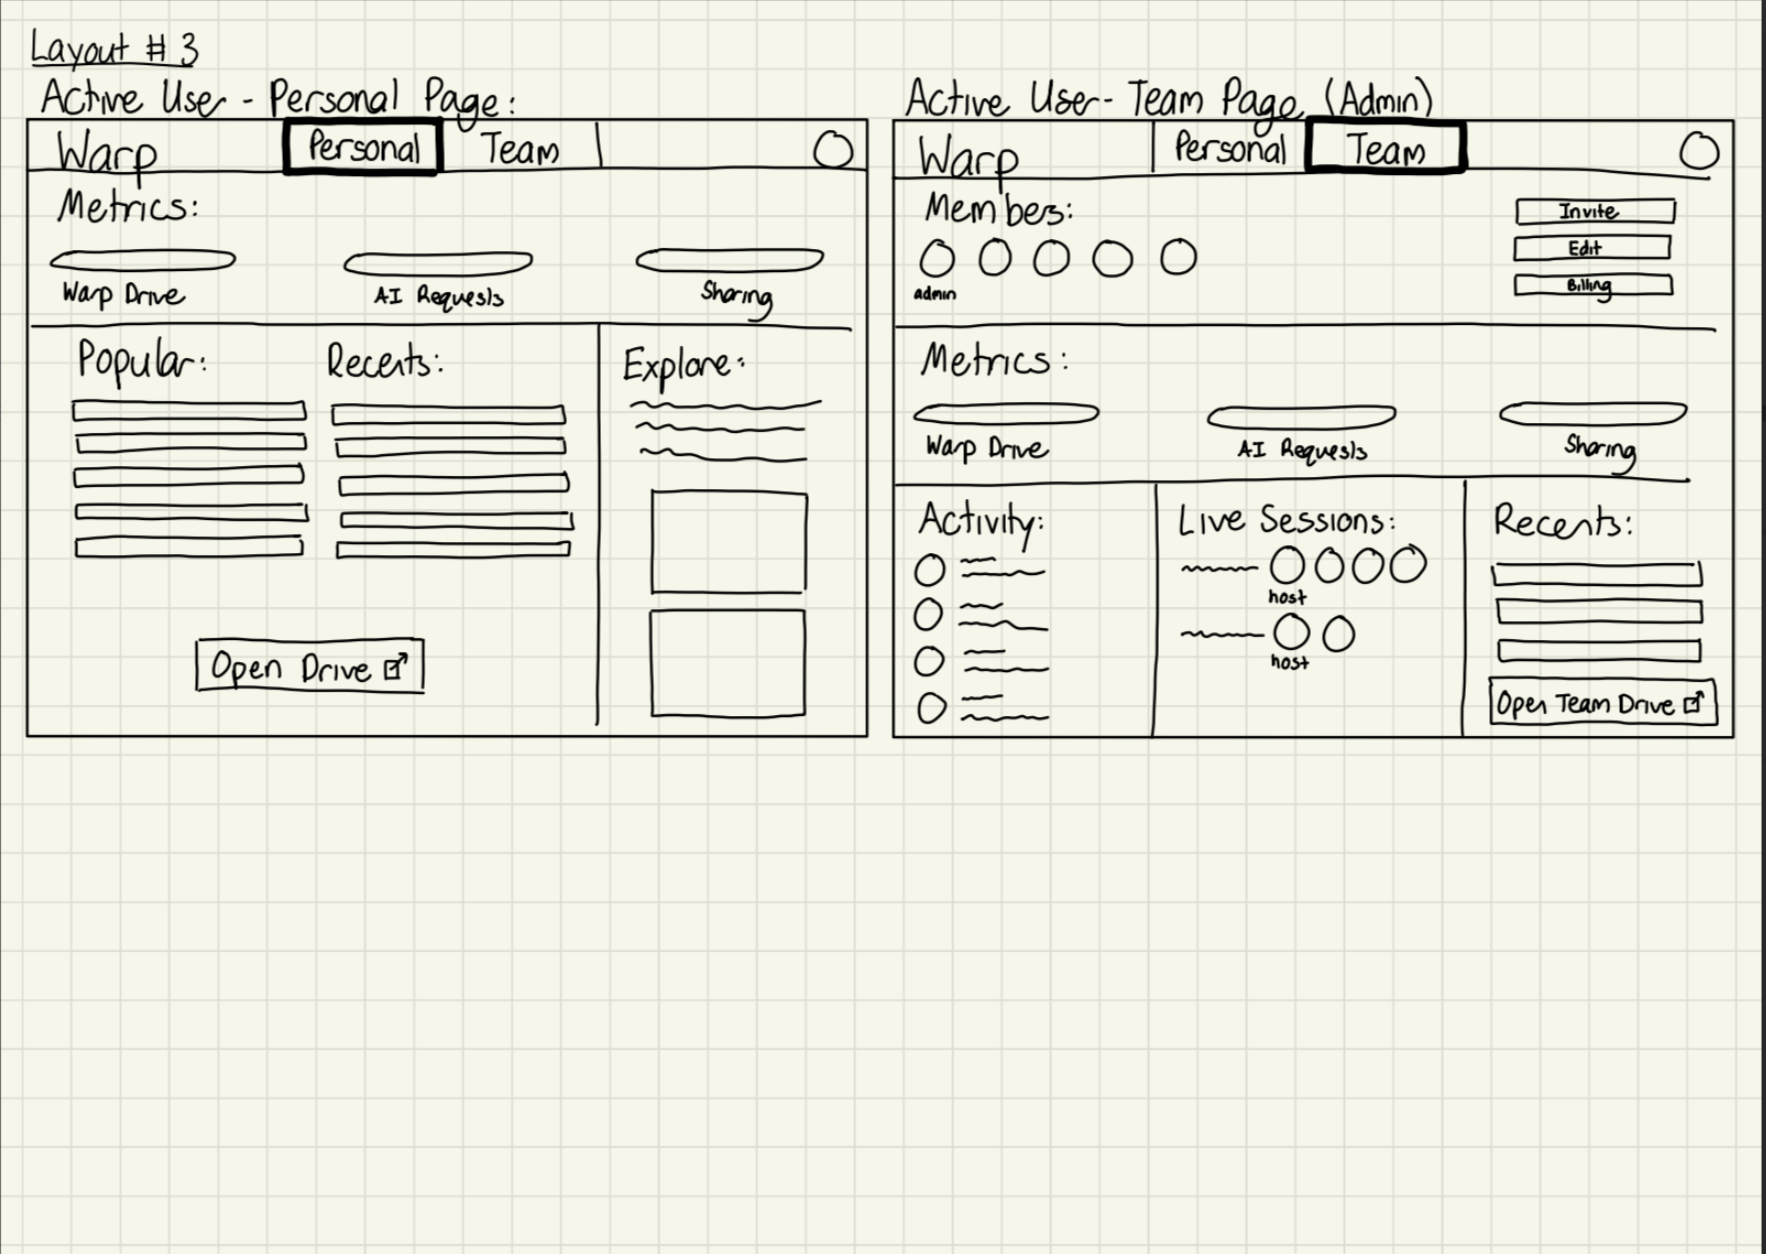 Layout # 3
Active User - Personal Page:
Warp Personal Team
Metrics:
Warp Drive AI Requests Sharing
Popular: Recents: Explore:
Open Drive
Active User - Team Page (Admin)
Warp Personal Team
Members:
admin
Invite
Edit
Billing
Metrics:
Warp Drive AI Requests Sharing
Activity: Live Sessions: Recents:
host
host
Open Team Drive